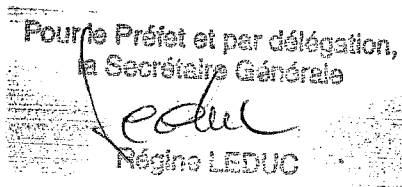 Pour le Préfet et par délégation,
la Secrétaire Générale
Leduc
Régine LEDUC